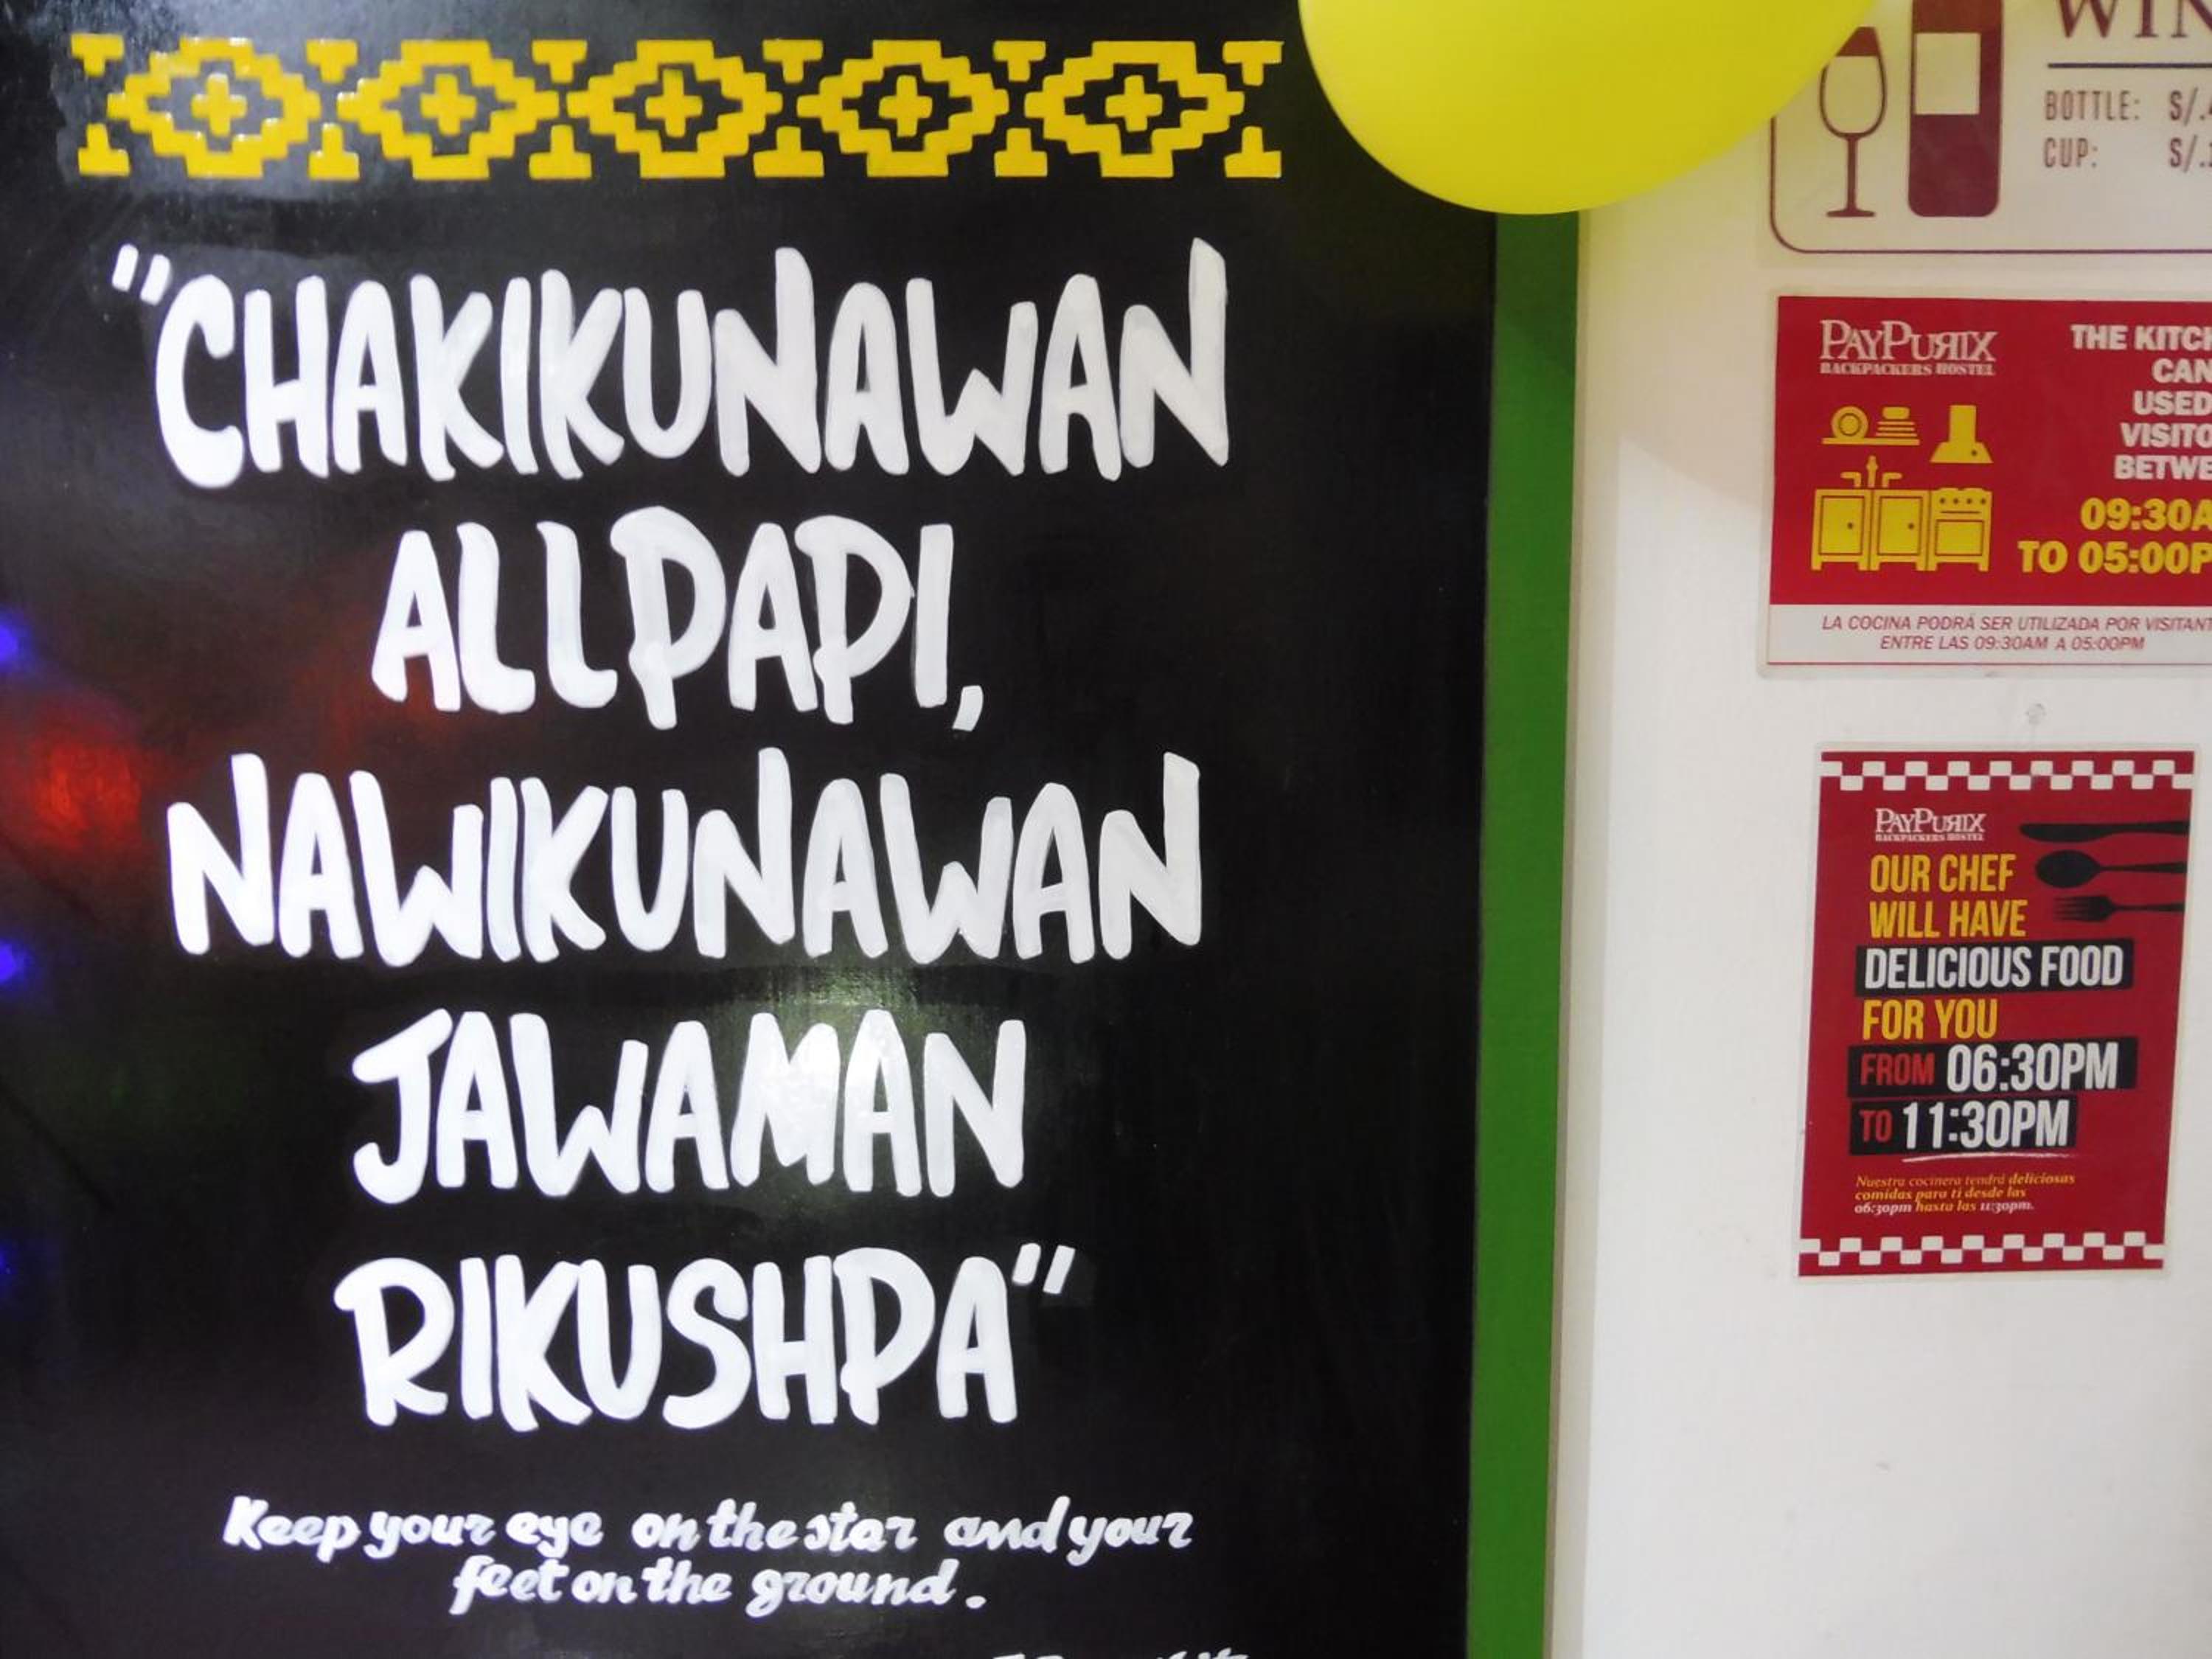 "CHAKIKUNAWAN
ALLPAPI,
NAWIKUNAWAN
JAWAMAN
RIKUSHPA"
Keep your eye on the star and your
feet on the ground.
BOTTLE: S/.
CUP: S/.
PAYPURIX
BACKPACKERS HOSTEL
THE
CAN
USED
09:30A
TO 05:00P
LA COCINA PODRÁ SER UTILIZADA POR VISITANT
ENTRE LAS 09:30AM A 05:00PM
PAYPURIX
BACKPACKERS HOSTEL
OUR CHEF
WILL HAVE
DELICIOUS FOOD
FOR YOU
FROM 06:30PM
TO 11:30PM
Nuestra cocinera tendrá deliciosas
comidas para ti desde las
06:30pm hasta las 11:30pm.